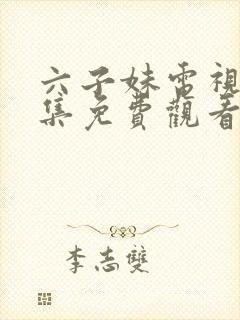 六子妹電視
集免費觀看
李志雙